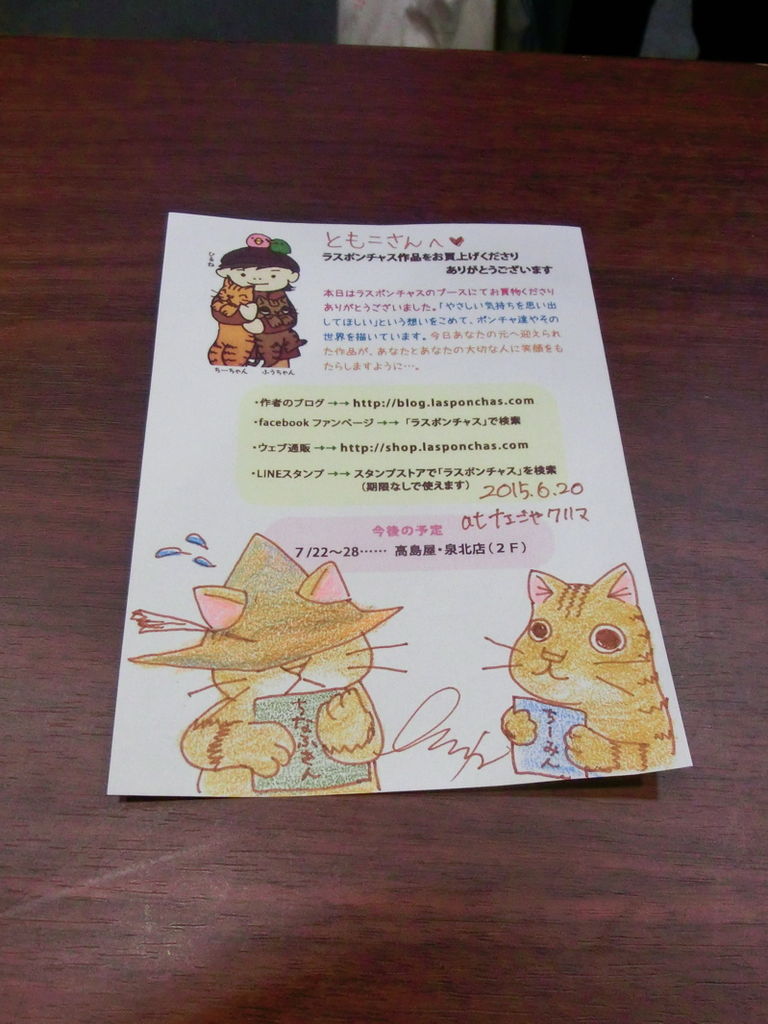 ともこさんへ♥
ラスポンチャス作品をお買上げくださり
ありがとうございます
ひるね
本日はラスポンチャスのブースにてお買物くださり
ありがとうございました。「やさしい気持ちを思い出
してほしい」という想いをこめて、ポンチャ達やその
世界を描いています。今日あなたの元へ迎えられ
た作品が、あなたとあなたの大切な人に笑顔をも
たらしますように…。
ちーちゃん ふうちゃん
・作者のブログ →→ http://blog.lasponchas.com
・facebook ファンページ →→ 「ラスポンチャス」で検索
・ウェブ通販 →→ http://shop.lasponchas.com
・LINEスタンプ →→ スタンプストアで「ラスポンチャス」を検索
(期限なしで使えます)
2015.6.20
at なごや クリマ
今後の予定
7/22〜28…… 高島屋・泉北店(2F)
ちーみん